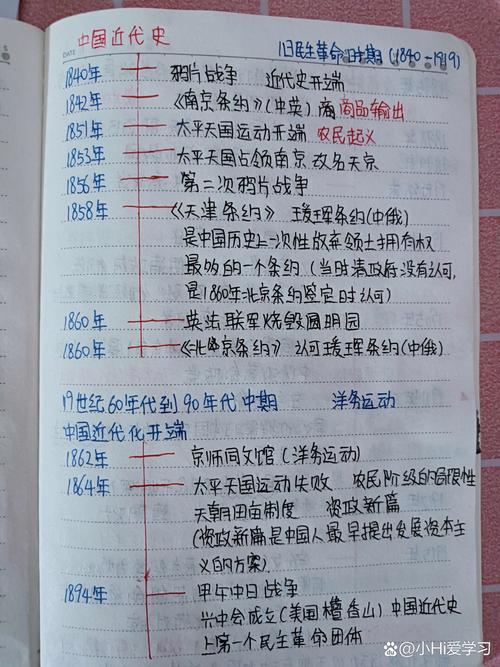 DATE
中国近代史
旧民主革命时期 (1840-1919)
1840年 鸦片战争 近代史开端
1842年 《南京条约》(中英) 商品输出
1851年 太平天国运动开端 农民起义
1853年 太平天国占领南京 改名天京
1856年 第二次鸦片战争
1858年 《天津条约》 瑷珲条约(中俄)
是中国历史上一次性放弃领土拥有权
最多的一个条约(当时清政府没有认可,
是1860年北京条约鉴定时认可)
1860年 英法联军烧毁圆明园
1860年 《北京条约》 认可瑷珲条约(中俄)
19世纪60年代到90年代中期 洋务运动
中国近代化开端
1862年 京师同文馆(洋务运动)
1864年 太平天国运动失败 农民阶级的局限性
天朝田亩制度 资政新篇
(资政新篇是中国人最早提出发展资本主
义的方案)
1894年 甲午中日战争
兴中会成立(美国檀香山)中国近代史
上第一个民主革命团体
小Hi爱学习